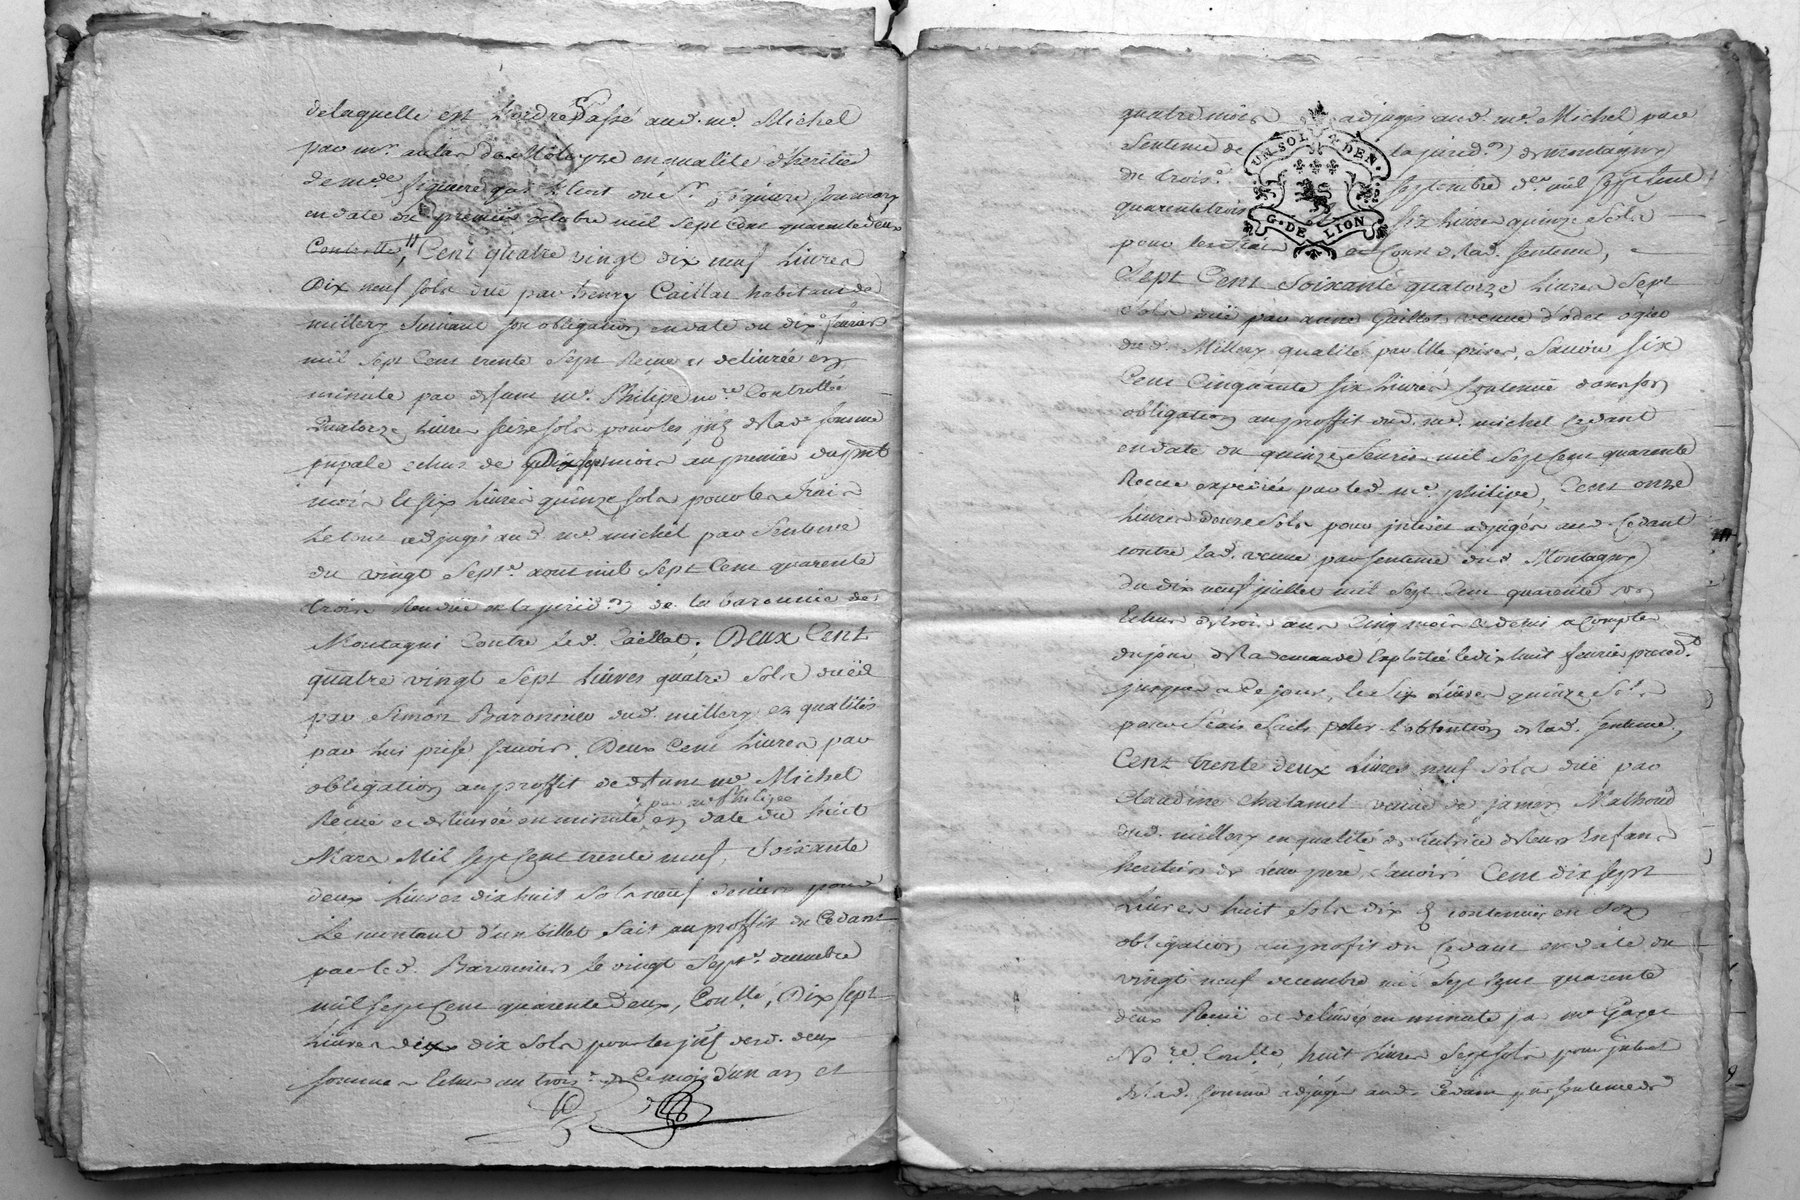 delaquelle est l'ordre passé aud. me. Michel
par mr. aulas en qualité d'heritier
de mde. figuiere qui étoit du Sr. figuiere son mary
en date du premier octobre mil sept cent quarente deux
Controllé, Cent quatre vingt dix neuf livres
Dix neuf sols düe par henry Caillat habitant de
millery suivant son obligation en date du dixe. fevrier
mil sept cent trente sept Recue et delivrée en
minutte par defunt me. Philipe nore. Controllée
Quatorze livres seize sols pour les jnts de lade. somme
pnpale echus de Dix sept mois au premier du pnt
mois et six livres quinze sols pour les frais
le tout adjugés aud. me. michel par Sentence
du vingt septe. aout mil sept cent quarente
trois Rendüe en la jurid.on de la baronnie de
Montagni Contre led. Caillat, Deux Cent
quatre vingt sept livres quatre sols dueïl
par Simon Baronnier dud. millery en qualités
par lui prise savoir Deux Cent livres par
obligation au proffit de defunt me. Michel
par me. Philipe
Recue et delivrée en minutte en date du huit
Mars Mil sept cent trente neuf, Soixante
deux livres dix huit sols neuf deniers pour
Le montant d'un billet fait au proffit du Cedant
par led. Baronnier le vingt septe. decembre
mil sept cent quarente deux, Conllé, Dix sept
livres dix sols pour les jnts desd. deux
sommes echus au trois e. de ce mois d'un an et
quatre mois adjugés aud. me. Michel par
Sentence de la jurid.on de montagny
du trois e. septembre der. mil sept cent
quarente trois six livres quinze sols
pour les frais et Cout de lad. sentence,
Sept Cent Soixante quatorze livres sept
sols düe par anne Guillot veuve d'odet ogier
dud. Millery qualité par Elle prises, Savoir six
Cent Cinquante six livres Contenüe dans son
obligation au proffit dud. me. michel Cedant
en date du quinze fevrier mil sept cent quarente
Recue expediée par led. me. philipe, Cent onze
livres douze sols pour jnterets adjugés aud. Cedant
contre lad. veuve par sentence dud. Montagny
du dix neuf juillet mil sept cent quarente
Echus de trois ans Cinq mois et demi a compter
du jour de la demande Exploitée le dix huit fevrier preced.t
jusques a ce jour, et Six Livres quinze sols
pour frais faits pour l'obtention de lad. sentence,
Cent trente deux Livres neuf sols düe par
Claudine Chatamel veuve de james Mathoud
dud. millery en qualité de tutrice de leurs Enfans
heritiers de leur pere, savoir Cent dix sept
Livres huit sols dix d contenües en son
obligation au profit du Cedant en date du
vingt neuf decembre mil sept cent quarente
deux Recüe et delivrée en minute par me Gayet
No.re Conllé, huit livres sept sols pour jnterets
de lad. somme adjugés aud. Cedant par sentence
UN SOL 4 DEN.
G. DE LION